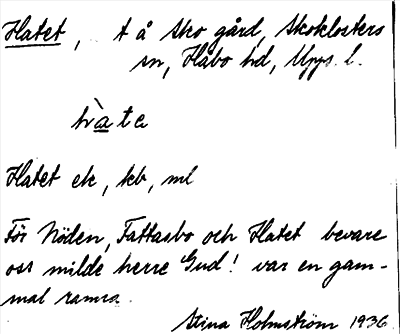 Hatet, t å Sko gård, Skoklosters
sn, Håbo hd, Upps. l.
hà̱te
Hatet ek, kb, ml
För Nöden, Fattasbo och Hatet bevare
oss milde herre Gud! var en gam-
mal ramsa.
Stina Holmström 1936